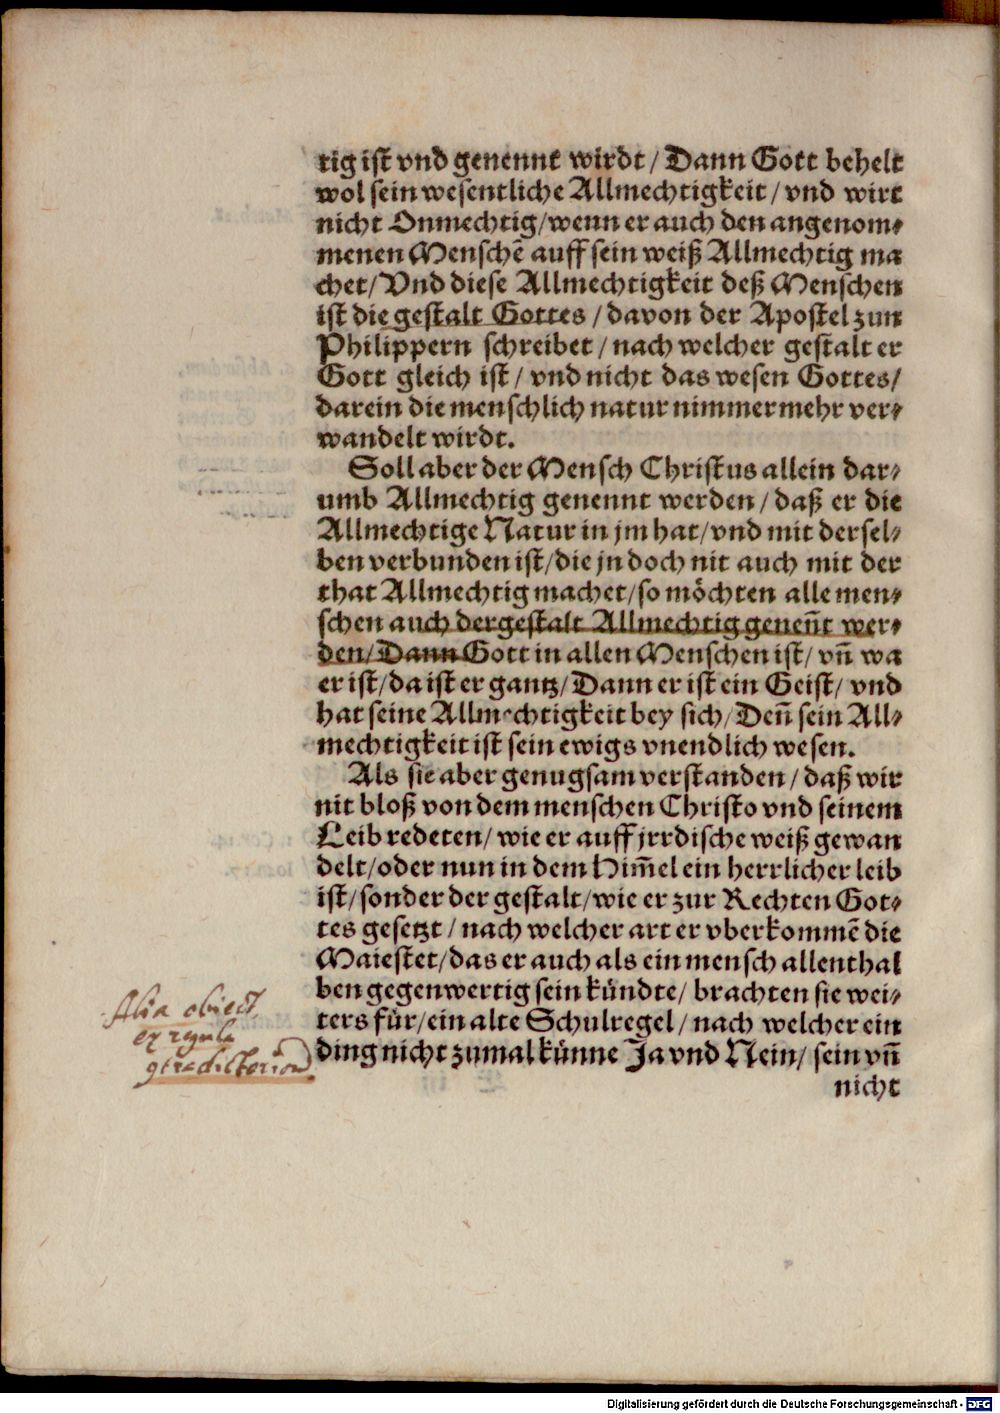 tig ist vnd genennt wirdt / Dann Gott behelt
wol sein wesentliche Allmechtigkeit / vnd wirt
nicht Onmechtig / wenn er auch den angenom-
menen Menschē auff sein weiß Allmechtig ma
chet / Vnd diese Allmechtigkeit deß Menschen
ist die gestalt Gottes / davon der Apostel zun
Philippern schreibet / nach welcher gestalt er
Gott gleich ist / vnd nicht das wesen Gottes /
darein die menschlich natur nimmermehr ver-
wandelt wirdt.
Soll aber der Mensch Christus allein dar-
umb Allmechtig genennt werden / daß er die
Allmechtige Natur in jm hat / vnd mit dersel-
ben verbunden ist / die jn doch nit auch mit der
that Allmechtig machet / so möchten alle men-
schen auch dergestalt Allmechtig genen̄t wer-
den / Dann Gott in allen Menschen ist / vn̄ wa
er ist / da ist er gantz / Dann er ist ein Geist / vnd
hat seine Allmechtigkeit bey sich / Den̄ sein All-
mechtigkeit ist sein ewigs vnendlich wesen.
Als sie aber genugsam verstanden / daß wir
nit bloß von dem menschen Christo vnd seinem
Leib redeten / wie er auff jrrdische weiß gewan
delt / oder nun in dem Him̄el ein herrlicher leib
ist / sonder der gestalt / wie er zur Rechten Got-
tes gesetzt / nach welcher art er vberkommē die
Maiestet / das er auch als ein mensch allenthal
ben gegenwertig sein kündte / brachten sie wei-
ters für / ein alte Schulregel / nach welcher ein
ding nicht zumal künne Ja vnd Nein / sein vn̄
nicht
Alia obiect.
ex regula
Digitalisierung gefördert durch die Deutsche Forschungsgemeinschaft - DFG